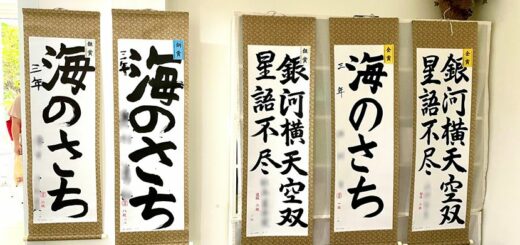 銀賞
海のさち
三年
銅賞
海のさち
三年
銀賞
銀河横天空双
星語不尽
金賞
海のさち
三年
金賞
銀河横天空双
星語不尽